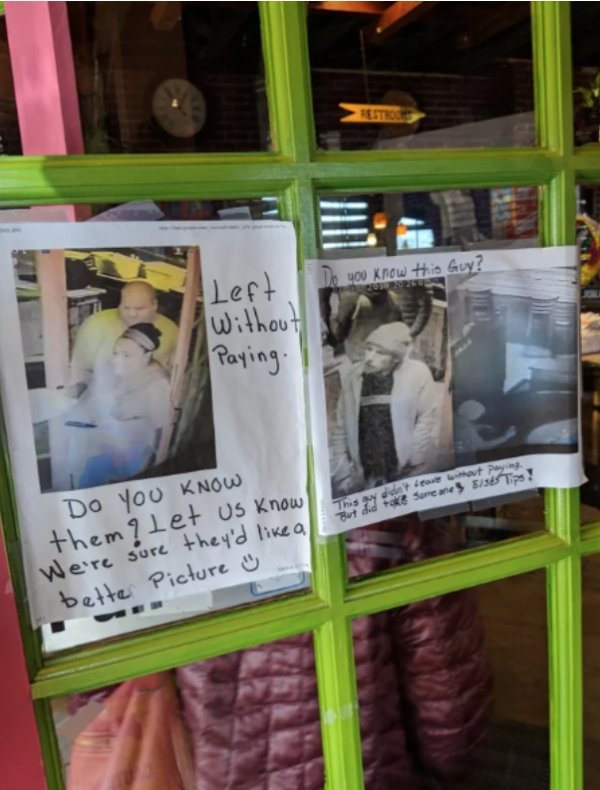 RESTROOMS
Left
Without
Paying.
DO YOU KNOW
them? Let US Know
We're sure they'd like a
bette Picture
Do you Know this Guy?
This guy didn't Leave without Paying.
But did take Someone's Elses Tips!